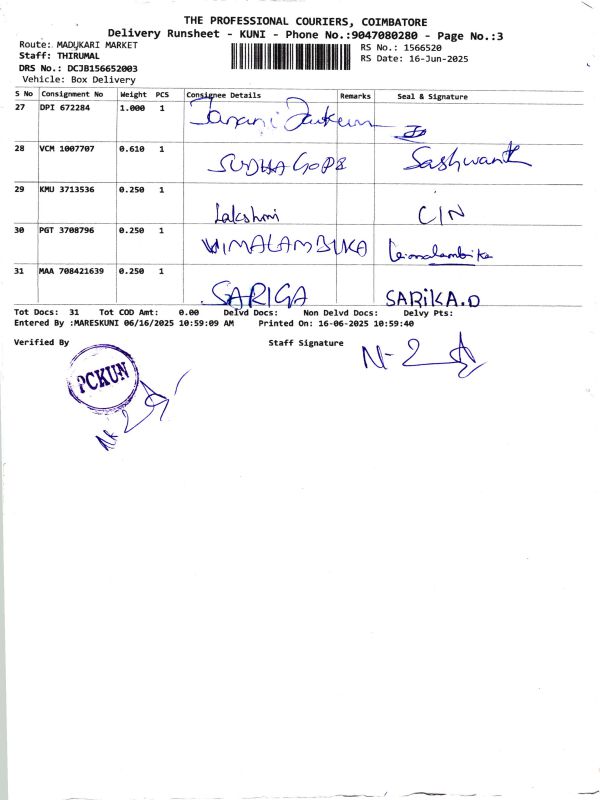 THE PROFESSIONAL COURIERS, COIMBATORE
Delivery Runsheet - KUNI - Phone No.:9047080280 - Page No.:3
Route: MADUKARI MARKET
RS No.: 1566520
Staff: THIRUMAL
RS Date: 16-Jun-2025
DRS No.: DCJB156652003
Vehicle: Box Delivery
S No Consignment No Weight PCS Consignee Details Remarks Seal & Signature
27 DPI 672284 1.000 1
28 VCM 1007707 0.610 1 SUDHA GOPE Sashwant
29 KMU 3713536 0.250 1 Lakshmi CIN
30 PGT 3708796 0.250 1 VIMALAMBIKA
31 MAA 708421639 0.250 1 SARIGA SARIKA.D
Tot Docs: 31 Tot COD Amt: 0.00 Delvd Docs: Non Delvd Docs: Delvy Pts:
Entered By :MARESKUNI 06/16/2025 10:59:09 AM Printed On: 16-06-2025 10:59:40
Verified By Staff Signature
PCKUN